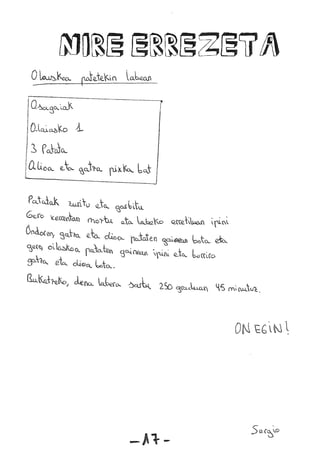 NIRE ERREZETA
Olauskoa patatekin labean
Osagaiak
Olaiasko 1
3 Patata
Olioa eta gatza pixka bat
Patatak zuritu eta garbitu
Gero xerretan moztu eta labeko erretiluan ipini
Ondoren, gatza eta olioa pataten gainean bota eta
gero oilaskoa pataten gainean ipini eta berriro
gatza eta olioa bota.
Bukatzeko, dena labera sartu 250 graduan 45 minutuz.
ON EGIN!
Sergio
-17-